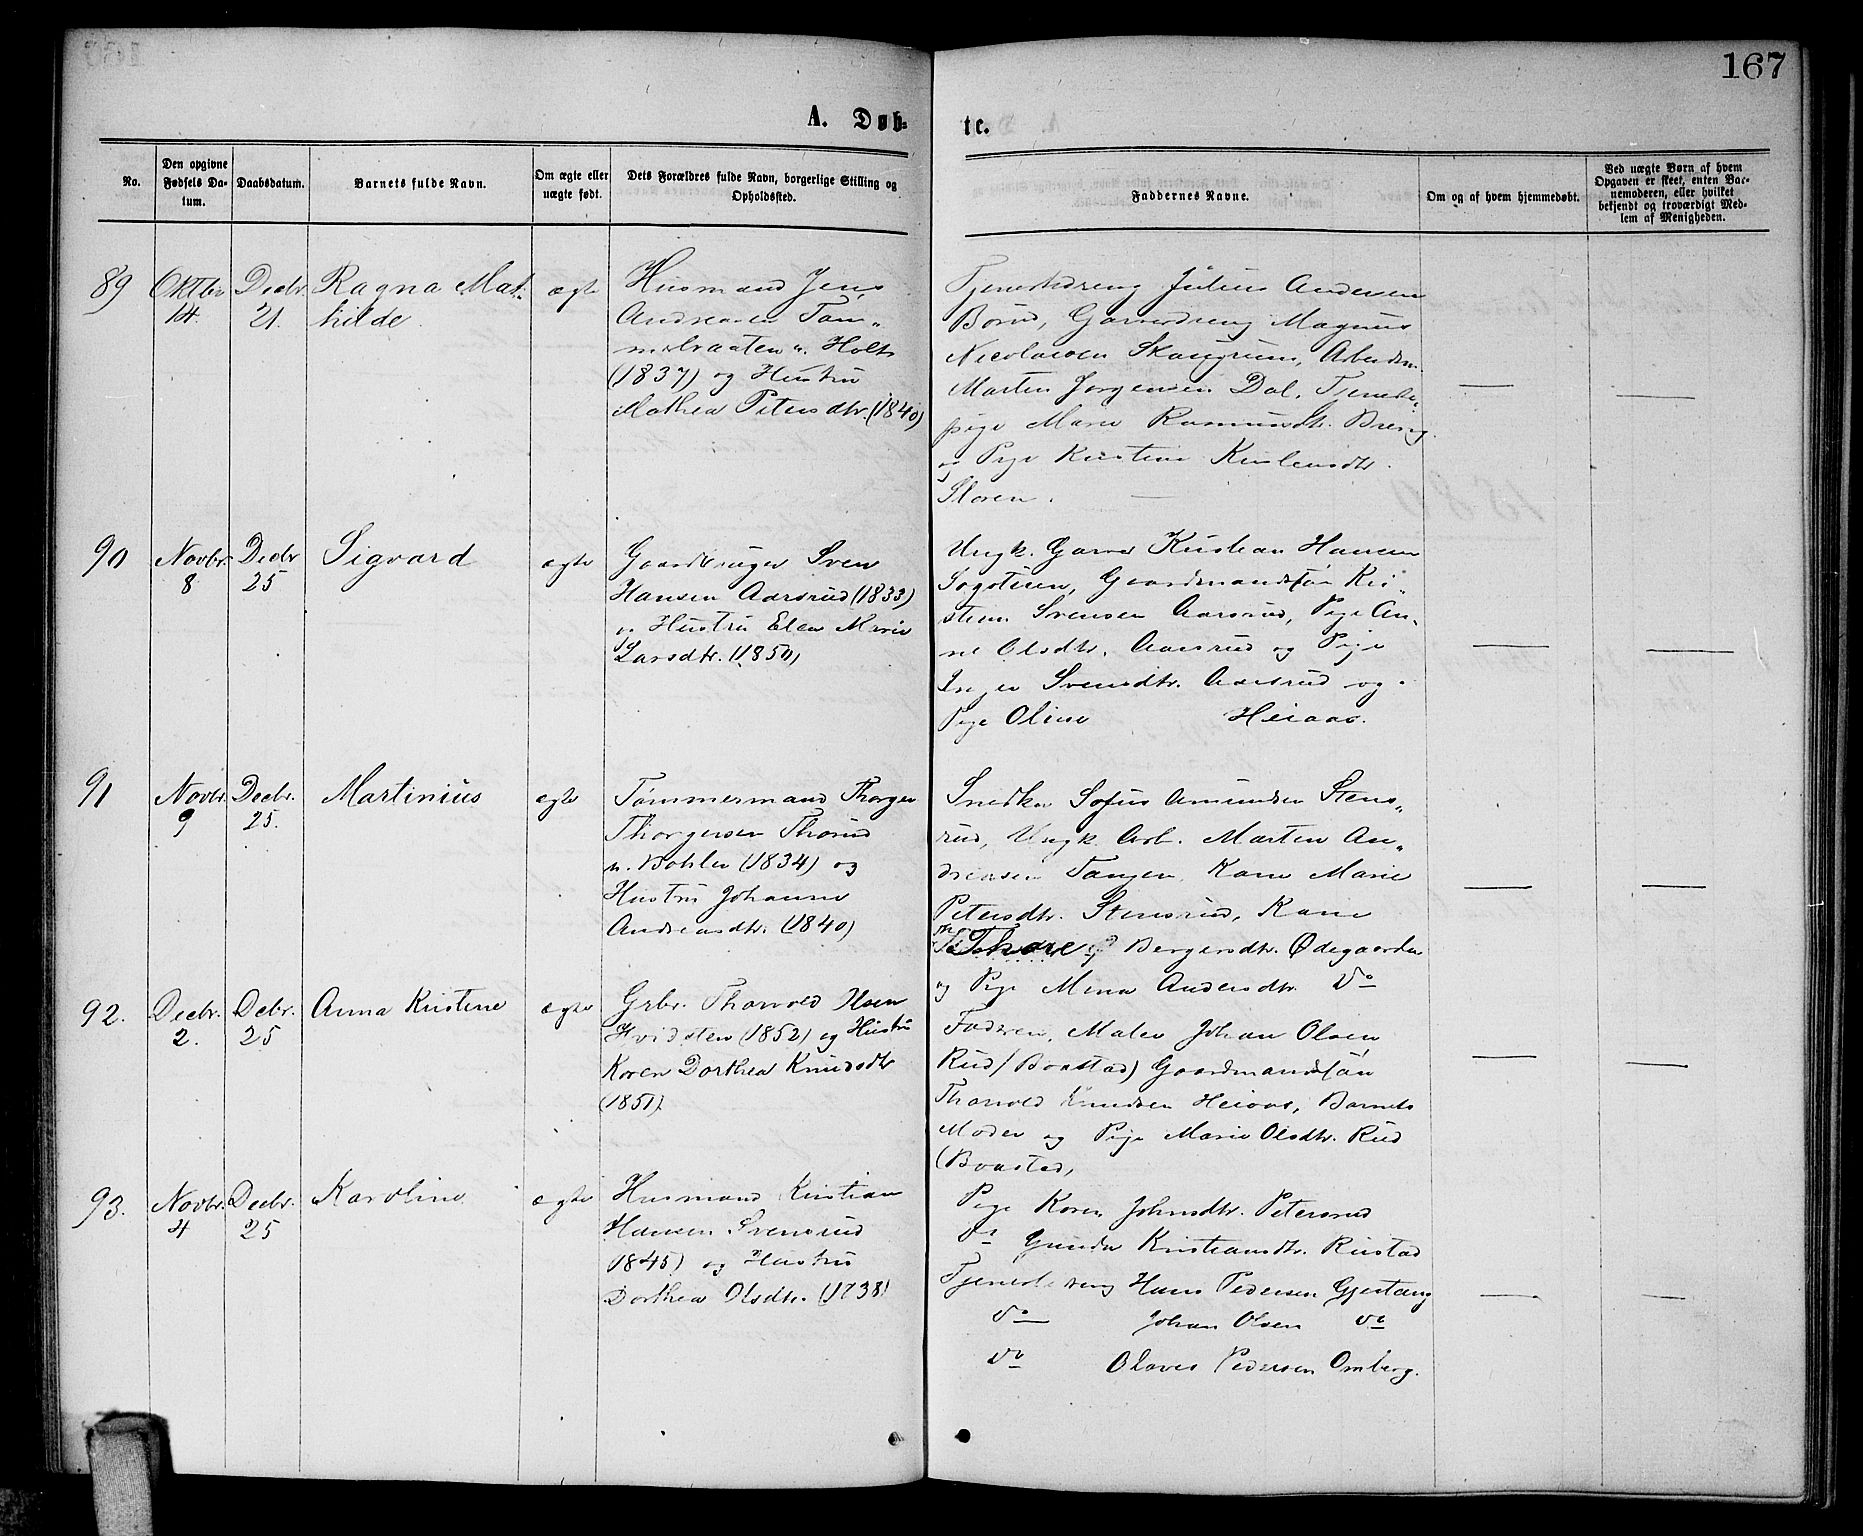 167
A. Døb-
te.
No.
Den opgivne
Fødsels Da-
tum.
Daabsdatum.
Barnets fulde Navn.
Om ægte eller
uægte født.
Dets Forældres fulde Navn, borgerlige Stilling og
Opholdssted.
Faddernes Navne.
Om og af hvem hjemmedøbt.
Ved uægte Børn af hvem
Opgaven er skeet, enten Bar-
nemoderen, eller hvilket
bekjendt og troværdigt Med-
lem af Menigheden.
89
Oktbr
14.
Decbr.
21.
Ragna Mat-
hilde
ægte
Husmand Jens
Andreasen Tøm„
merbraaten u. Holt
(1837) og Hustru
Mathea Petersdtr. (1840)
Tjenestedreng Julius Andersen
Børud, Gaardreng Magnus
Nicolaisen Skaugrum, Arbeidsm.
Martin Jørgensen Dal, Tjeneste-
pige Marie Rasmusdtr. Breng
og Pige Kristine
Støren.
90
Novbr.
8
Decbr
25
Sigvard
ægte
Gaardbruger Sven
Hansen Aarsrud (1833)
og Hustru Elen Marie
Larsdtr. (1850)
Ungk. Garver Kristian Hansen
Sogstien, Gaardmandssøn Kri-
stian Svensen Aarsrud, Pige An-
ne Olsdtr. Aarsrud og Pige
Inger Svensdtr. Aarsrud og
Pige Oline Heiaas.
91
Novbr.
9
Decbr.
25.
Martinius
ægte
Tømmermand Thorger
Thorgersen Thorud
u. Bøhler (1834) og
Hustru Johanne
Andreasdtr. (1840)
Snedker Sofus Amundsen Stens„
rud, Ungk. Arb. Marten An„
dreasen Tangen, Kone Marie
Petersdtr. Stensrud, Kone
Thore Bergersdtr. Ødegaarden
og Pige Mina Andersdtr. Do
92.
Decbr.
2.
Decbr.
25
Anna Kristine
ægte
Grbr. Thorvald Olsen
Hvidsten (1852) og Hustru
Karen Dorthea Knudsdtr
(1851)
Faderen, Maler Johan Olsen
Rud (Baastad) Gaardmandssøn
Thorvald Knudsen Heiaas, Barnets
Moder og Pige Marie Olsdtr. Rud
(Baastad)
93.
Novbr.
4
Decbr.
25
Karoline
ægte
Husmand Kristian
Hansen Svensrud
1845) og Hustru
Dorthea Olsdtr. (1838)
Pige Karen Johnsdtr. Petersrud
Do Gunda Kristiansdtr. Rustad
Tjenestedreng Hans Pedersen Gjestang
Do Johan Olsen Do
Do Olaves Pedersen Omberg.